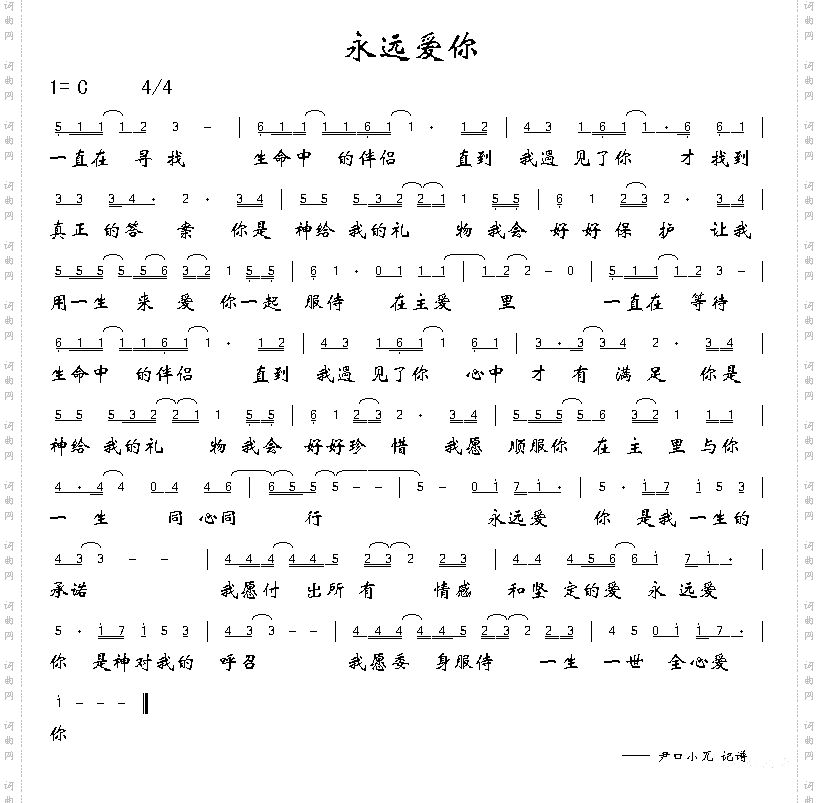 永远爱你
1= C 4/4
5 1 1 1 2 3 - | 6 1 1 1 1 6 1 1 · 1 2 | 4 3 1 6 1 1 · 6 6 1 |
一直在 寻找 生命中 的伴侣 直到 我遇 见了你 才 找到
3 3 3 4 · 2 · 3 4 | 5 5 5 3 2 2 1 1 5 5 | 6 1 2 3 2 · 3 4 |
真正 的答 案 你是 神给 我的礼 物 我会 好 好 保 护 让我
5 5 5 5 5 6 3 2 1 5 5 | 6 1 · 0 1 1 1 | 1 2 2 - 0 | 5 1 1 1 2 3 - |
用一生 来 爱 你一起 服侍 在主爱 里 一直在 等待
6 1 1 1 1 6 1 1 · 1 2 | 4 3 1 6 1 1 6 1 | 3 · 3 3 4 2 · 3 4 |
生命中 的伴侣 直到 我遇 见了你 心中 才 有 满 足 你是
5 5 5 3 2 2 1 1 5 5 | 6 1 2 3 2 · 3 4 | 5 5 5 5 6 3 2 1 1 |
神给 我的礼 物 我会 好好珍 惜 我愿 顺服你 在 主 里 与你
4 · 4 4 0 4 4 6 | 6 5 5 5 - - | 5 - 0 1 7 1 · | 5 · 1 7 1 5 3 |
一 生 同 心同 行 永远爱 你 是我 一生的
4 3 3 - - | 4 4 4 4 5 2 3 2 2 3 | 4 4 4 5 6 6 1 7 1 · |
承诺 我愿付 出所 有 情感 和坚 定的爱 永 远爱
5 · 1 7 1 5 3 | 4 3 3 - - | 4 4 4 4 4 5 2 3 2 2 3 | 4 5 0 1 1 7 · |
你 是神 对我的 呼召 我愿委 身服侍 一生 一世 全心爱
1 - - -
你
—— 尹口小兀 记谱
词曲网